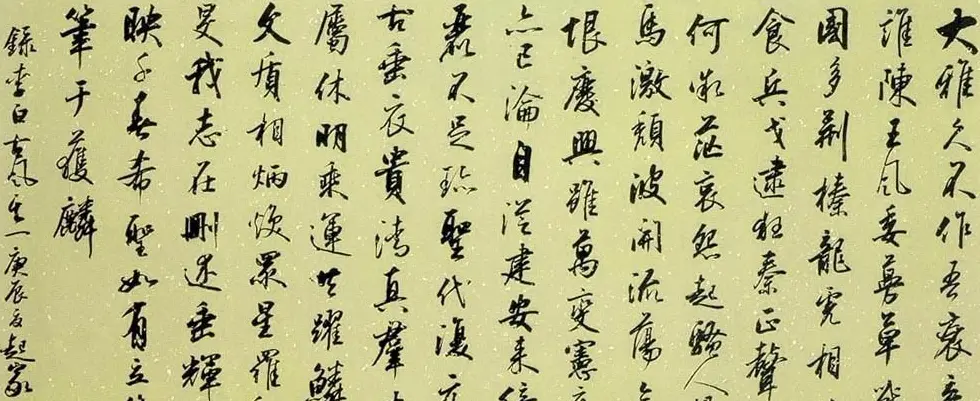 大雅久不作吾衰
誰陳王風委蔓草
國多荆榛龍虎相
食兵戈逮狂秦正聲
何微茫哀怨起騷人
馬激頹波開流蕩
垠廢興雖萬變憲
亦已淪自從建安來
麗不足珍聖代復
古垂衣貴清真羣
屬休明乘運共躍鱗
文質相炳煥眾星羅
旻我志在刪述垂輝
映千春希聖如有立
筆于獲麟
錄李白古風之一庚辰夏起